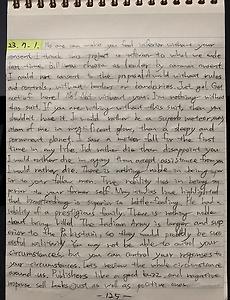 23.7.1. No one can make you feel inferior without your
consent. I think this project is inferior to what we did
last time. I'll either choose as leader by common consent.
I could not consent to the proposal. World without rules
and controls, without borders or boundaries. Just go. Get
out of here. I'm lost without you. I'm nothing without
this suit. If you are nothing without this suit, then you
shouldn't have it. I would rather be a superb meteor, every
atom of me in magnificent glow, than a sleepy and
permanent planet. I saw a meteor fall for the first
time in my life. I'd rather die than disappoint you.
I would rather die in agony than accept assistance from you.
I would rather die. There is nothing noble in being
your fellow man. True nobility lies in being
prior to your former self. The studies have highlighted
that Breastfeeding is superior to bottle-feeding. He had a
nobility of a prestigious family. There is nothing noble
about being killed. The Indian Army is larger and sup
erior to the Pakistani, so they would probably be suc
cessful militarily. You may not be able to control your
circumstances, but you can control your responses to
your circumstances. Let's review the whole circumstance
around us. Publishers a good buzz, and negative
impress sell books just as well as positive ones.
— 125 —